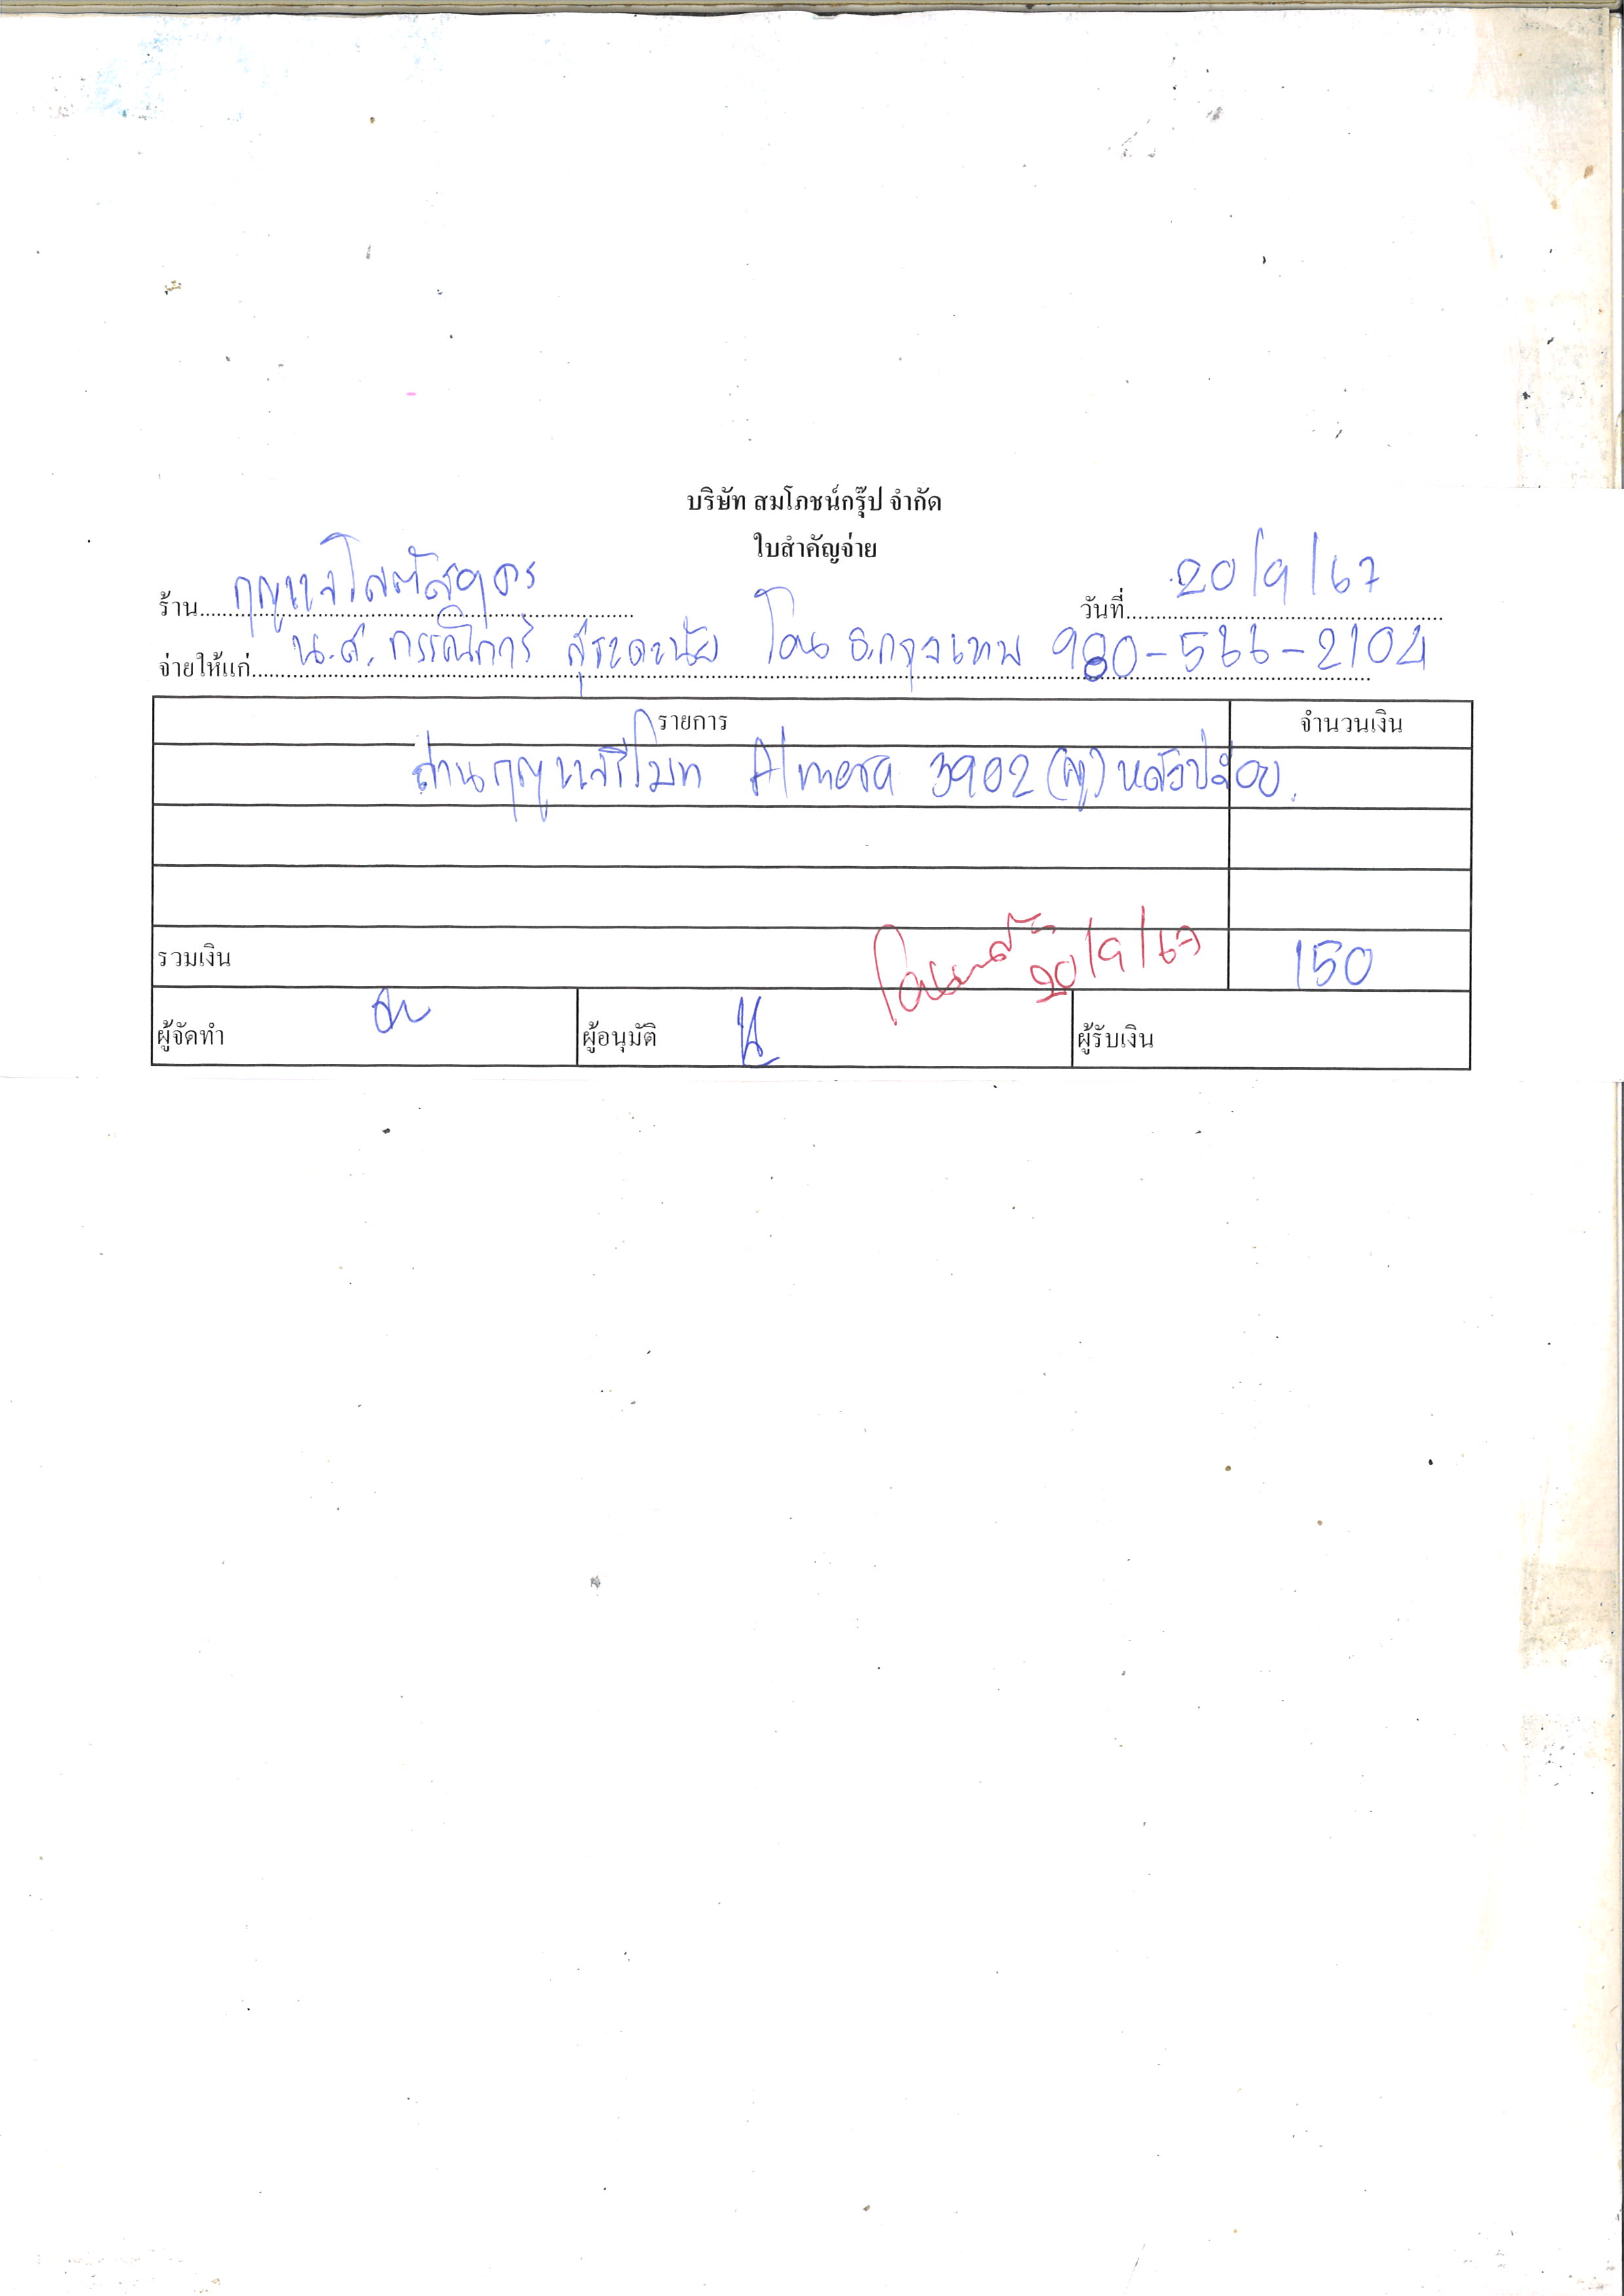 บริษัท สมโภชน์กรุ๊ป จำกัด
ใบสำคัญจ่าย
ร้าน กุญแจโลตัส วันที่ 20/9/67
จ่ายให้แก่ น.ส. กรรณิการ์ โอน ธ.กรุงเทพ 980-566-2104
รายการ จำนวนเงิน
ถ่านกุญแจรีโมท Almera 3902
รวมเงิน 150
โอนแล้ว 20/9/67
ผู้จัดทำ ผู้อนุมัติ ผู้รับเงิน